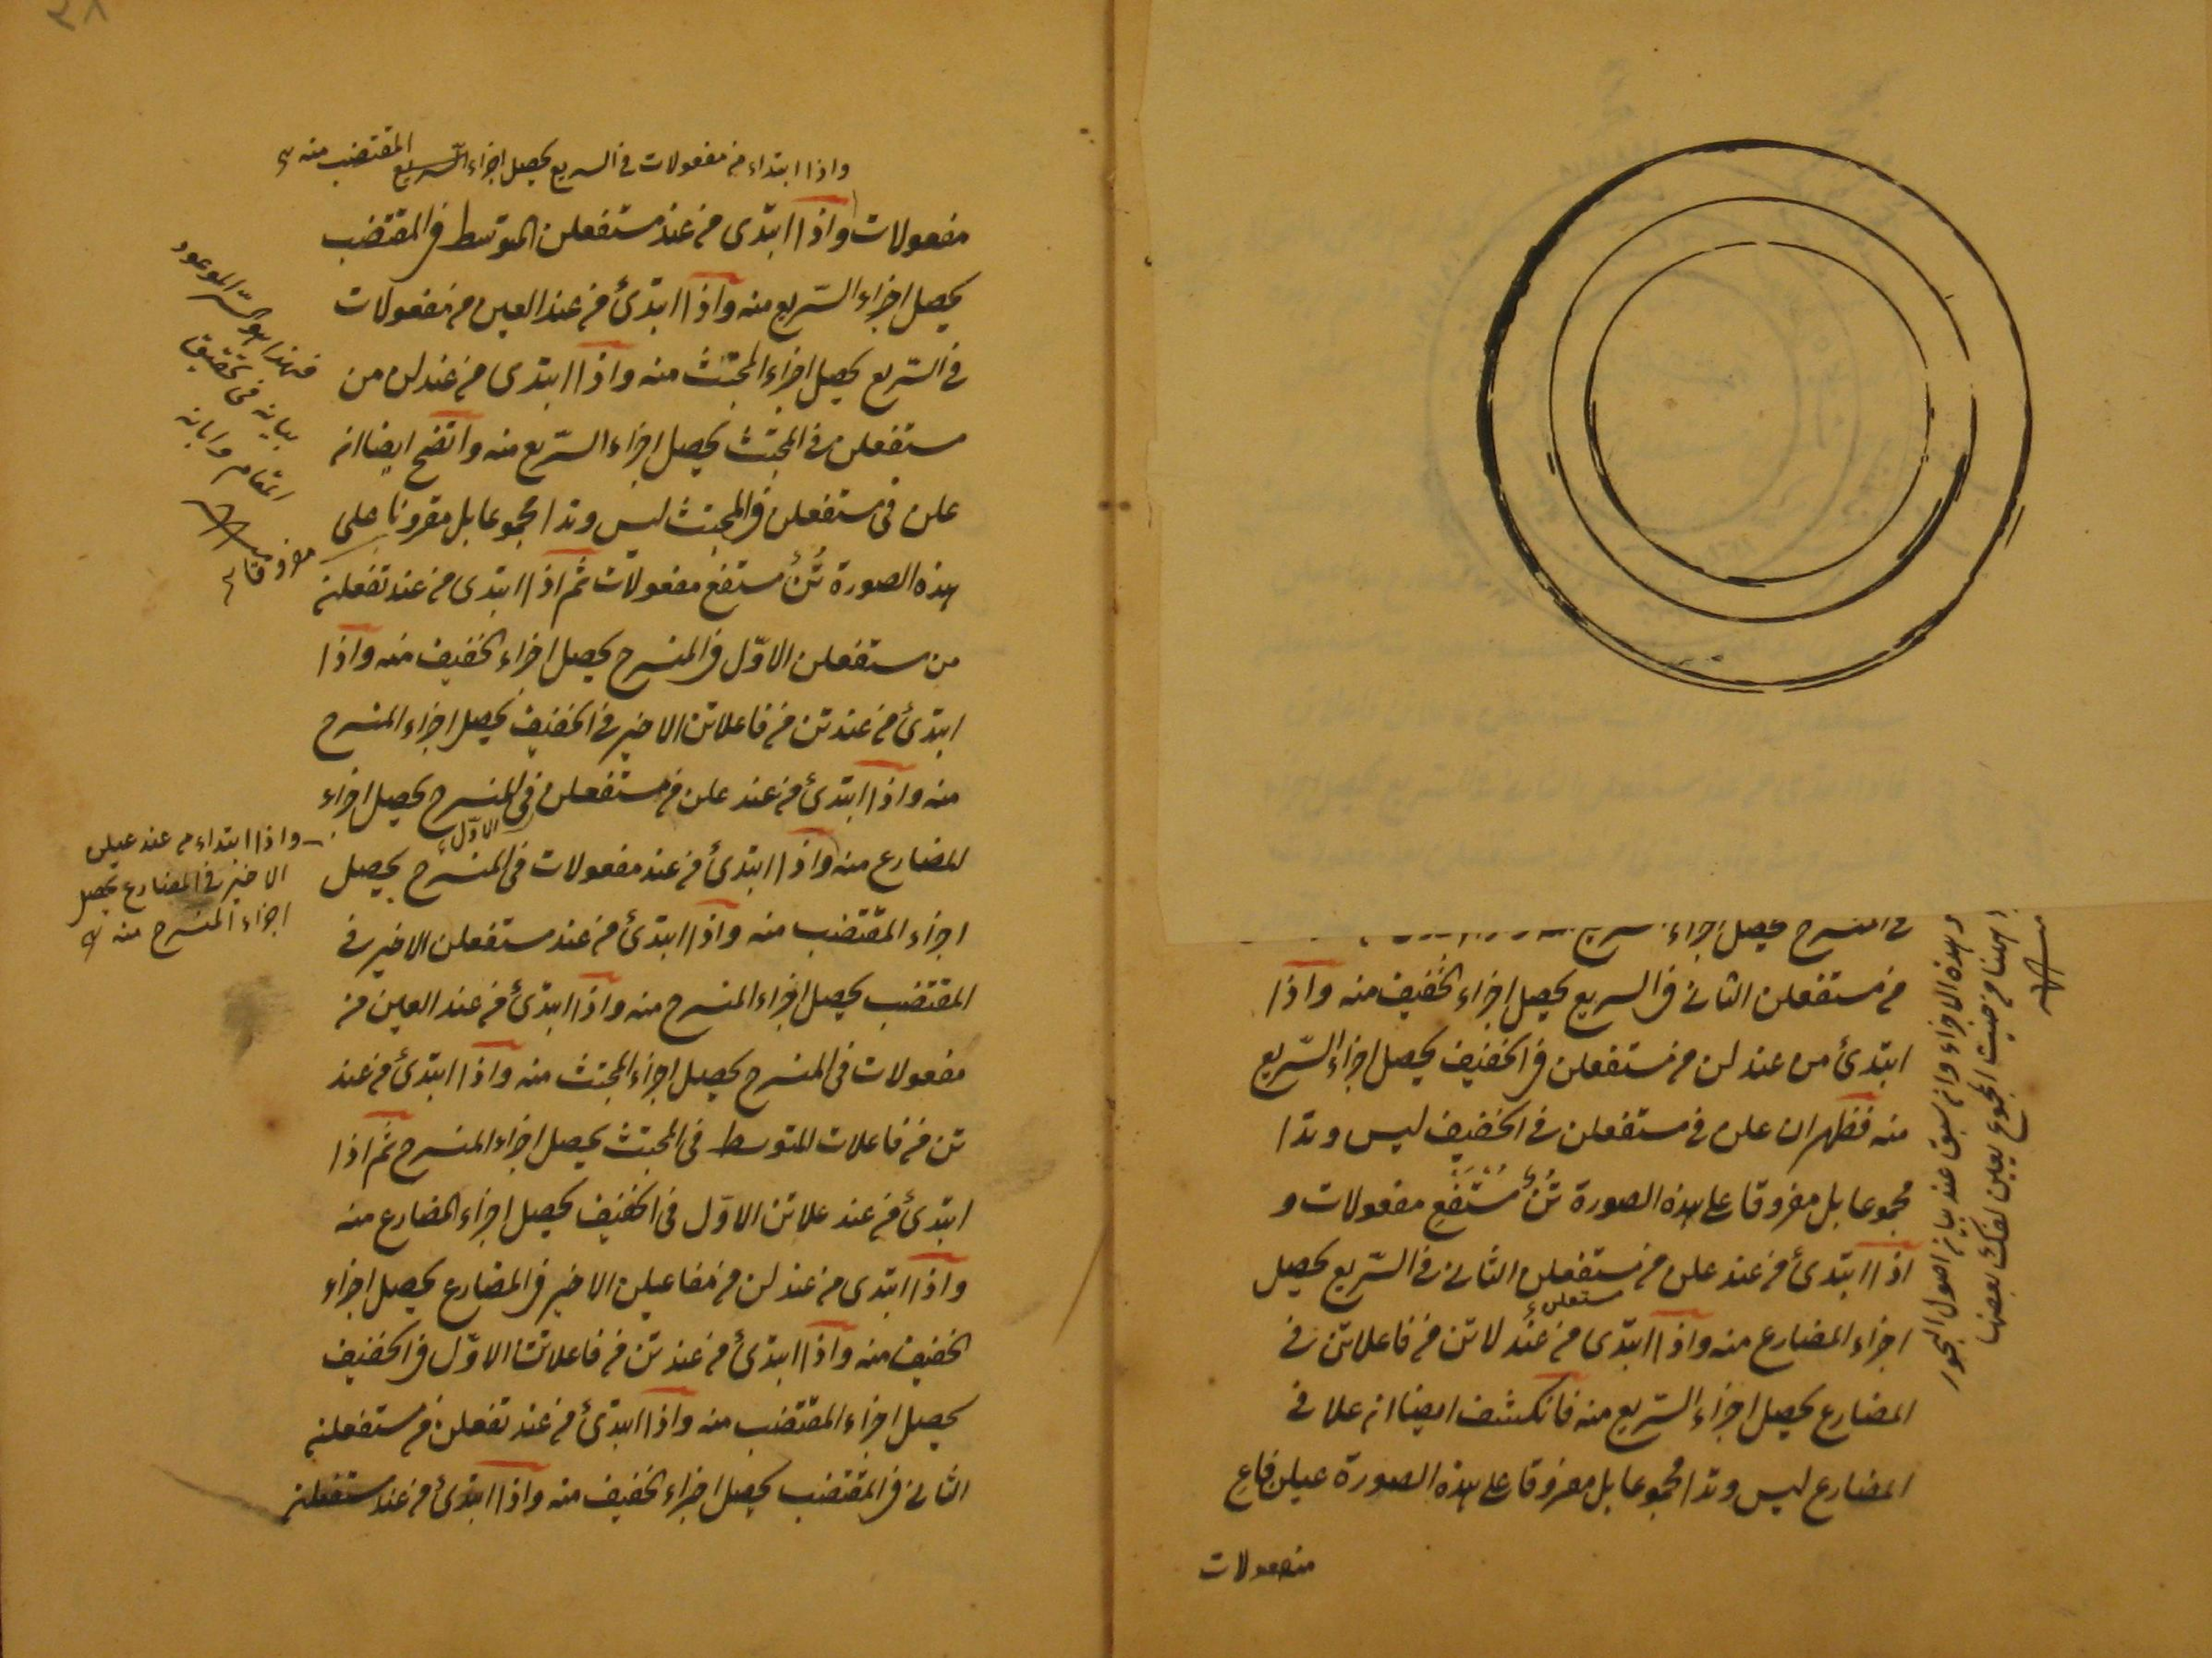 في المنسرح يحصل اجزاء السريع
من مستفعلن الثاني في السريع يحصل اجزاء الخفيف منه واذا
ابتدئ من عند لن من مستفعلن في الخفيف يحصل اجزاء السّريع
منه فظهر ان علن في مستفعلن في الخفيف ليس وتدا
مجموعا بل مفروقا على هذه الصورة تُنْ مُسْتَفْعِ مفعولات و
اذا ابتدئ من عند علن من مستفعلن الثاني في السّريع يحصل
اجزاء المضارع منه واذا ابتدى من عند لاتن من فاعلاتن في
مستفعلن
المضارع يحصل اجزاء السّريع منه فانكشف ايضا انه علا في
المضارع ليس وتدا مجموعا بل مفروقا على هذه الصورة عيلن فاع
مفعولات
وهذه الاجزاء وان سبق عند بيان اصول البحور
المجموع يعلن لفك بعضها
واذا ابتداء من مفعولات في السريع يحصل اجزاء السريع المقتضب منه
مفعولات واذا ابتدى من عند مستفعلن المتوسط في المقتضب
يحصل اجزاء السّريع منه واذا ابتدئ من عند العين من مفعولات
في السّريع يحصل اجزاء المجتث منه واذا ابتدى من عند لن من
مستفعلن في المجتث يحصل اجزاء السّريع منه واتضح ايضا انه
علن في مستفعلن في المجتث ليس وتدا مجموعا بل مقرونا على
هذه الصورة تُنْ مستفع مفعولات ثم اذا ابتدى من عند تفعلن
من مستفعلن الاوّل في المنسرح يحصل اجزاء الخفيف منه واذا
ابتدئ من عند تن من فاعلاتن الاخير في الخفيف يحصل اجزاء المنسرح
منه واذا ابتدئ من عند علن من مستفعلن في المنسرح يحصل اجزاء
الاوّل
المضارع منه واذا ابتدئ من عند مفعولات في المنسرح يحصل
اجزاء المقتضب منه واذا ابتدئ من عند مستفعلن الاخير في
المقتضب يحصل اجزاء المنسرح منه واذا ابتدئ من عند العين من
مفعولات في المنسرح يحصل اجزاء المجتث منه واذا ابتدئ من عند
تن من فاعلات المتوسط في المجتث يحصل اجزاء المنسرح ثم اذا
ابتدئ من عند علاتن الاوّل في الخفيف يحصل اجزاء المضارع منه
واذا ابتدى من عند لن من مفاعيلن الاخير في المضارع يحصل اجزاء
الخفيف منه واذا ابتدئ من عند تن من فاعلاتن الاوّل في الخفيف
يحصل اجزاء المقتضب منه واذا ابتدئ من عند تفعلن من مستفعلن
الثاني في المقتضب يحصل اجزاء الخفيف منه واذا ابتدئ من عند مستفعلن
فهذا هو السّر الموعود
بيانه في تحقيق
المقام وابانه
مفروقا
واذا ابتداء من عند عيلن
الاخير في المضارع يحصل
اجزاء المنسرح منه